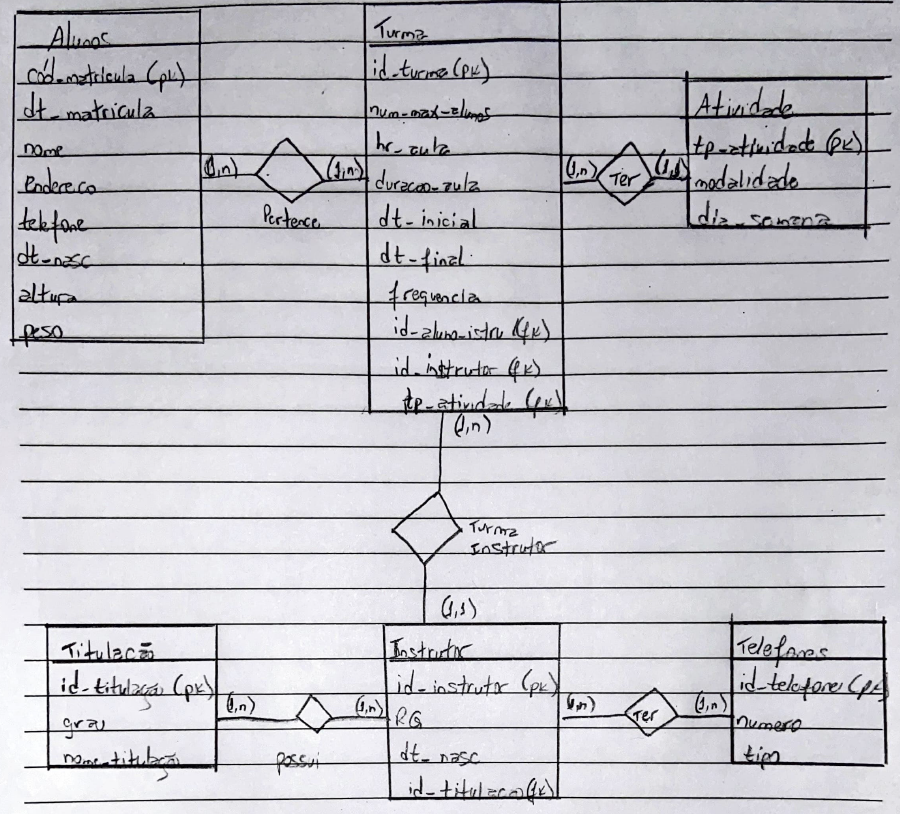 Alunos
cód_matrícula (pk)
dt_matricula
nome
Endereco
telefone
dt_nasc
altura
peso
(1,n)
(1,n)
Pertence
Turma
id_turma (pk)
num_max_alunos
hr_aula
duracao_aula
dt_inicial
dt_final
frequencia
id_alum_istru (fk)
id_instrutor (fk)
tp_atividade (fk)
(1,n)
Ter
(1,1)
Atividade
tp_atividade (pk)
modalidade
dia_semana
(1,n)
Turma
Instrutor
(1,1)
Titulacão
id_titulação (pk)
grau
nome_titulação
(1,n)
(1,n)
possui
Instrutor
id_instrutor (pk)
RG
dt_nasc
id_titulacao (fk)
(1,n)
Ter
(1,n)
Telefones
id_telefone (pk)
numero
tipo